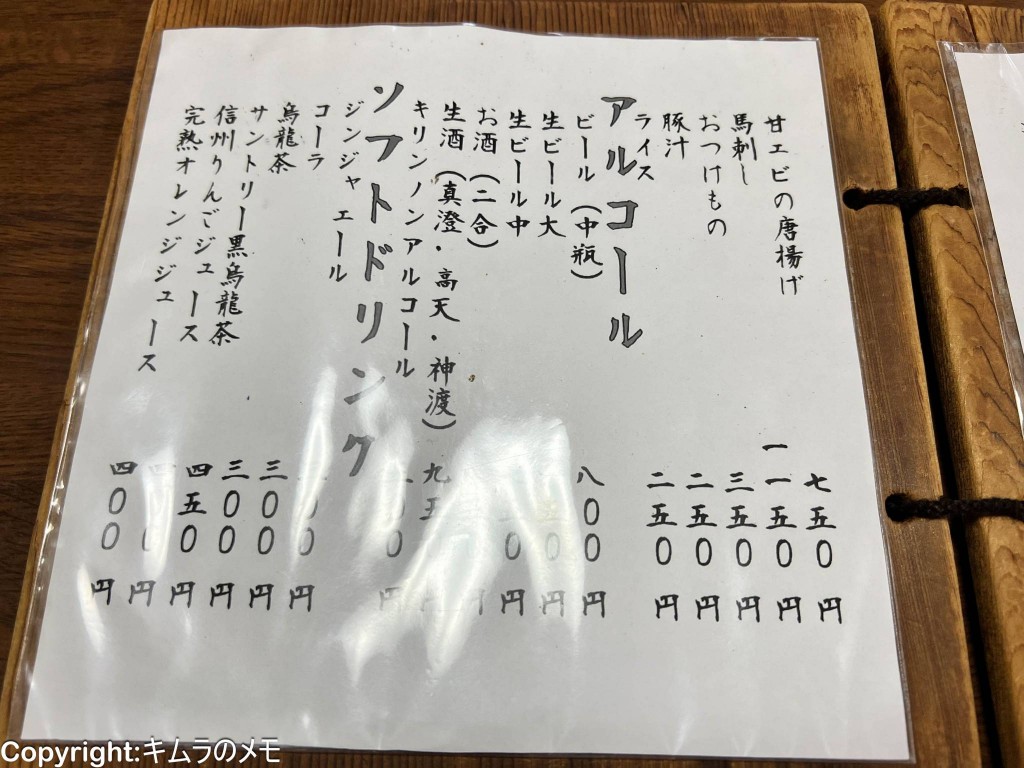 甘エビの唐揚げ 七五0円
馬刺し 一一五0円
おつけもの 三五0円
豚汁 二五0円
ライス 二五0円
アルコール
ビール（中瓶） 八00円
生ビール大 円
生ビール中 円
お酒（二合） 円
生酒（真澄・高天・神渡） 九五 円
キリンノンアルコール 円
ソフトドリンク
ジンジャエール 円
コーラ 三00円
烏龍茶 三00円
サントリー黒烏龍茶 四五0円
信州りんごジュース 円
完熟オレンジジュース 四00円
Copyright:キムラのメモ